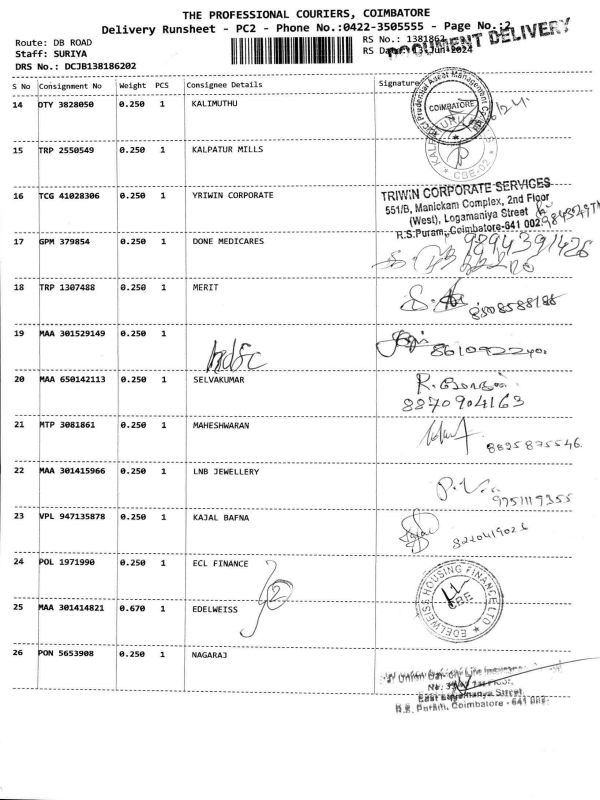 THE PROFESSIONAL COURIERS, COIMBATORE
Delivery Runsheet - PC2 - Phone No.:0422-3505555 - Page No.:2
DOCUMENT DELIVERY
Route: DB ROAD
RS No.: 1381862
Staff: SURIYA
RS Date: 13-Jun-2024
DRS No.: DCJB138186202
S No Consignment No Weight PCS Consignee Details Signature
14 OTY 3828050 0.250 1 KALIMUTHU
COIMBATORE
15 TRP 2550549 0.250 1 KALPATUR MILLS
CBE-02
16 TCG 41028306 0.250 1 YRIWIN CORPORATE
TRIWIN CORPORATE SERVICES
551/B, Manickam Complex, 2nd Floor
(West), Logamaniya Street
R.S.Puram, Coimbatore-641 002
17 GPM 379854 0.250 1 DONE MEDICARES
9894391426
18 TRP 1307488 0.250 1 MERIT
19 MAA 301529149 0.250 1
hdfc
20 MAA 650142113 0.250 1 SELVAKUMAR
8870904163
21 MTP 3081861 0.250 1 MAHESHWARAN
8895875546
22 MAA 301415966 0.250 1 LNB JEWELLERY
9751119355
23 VPL 947135878 0.250 1 KAJAL BAFNA
8220419026
24 POL 1971990 0.250 1 ECL FINANCE
EDELWEISS HOUSING FINANCE LTD
CBE
25 MAA 301414821 0.670 1 EDELWEISS
26 PON 5653908 0.250 1 NAGARAJ
East Logamanya Street,
R.S. Puram, Coimbatore - 641 002